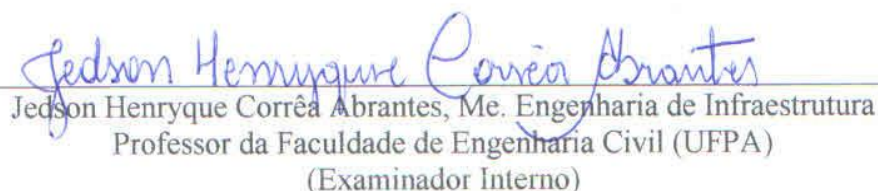 Jedson Henryque Corrêa Abrantes
Jedson Henryque Corrêa Abrantes, Me. Engenharia de Infraestrutura
Professor da Faculdade de Engenharia Civil (UFPA)
(Examinador Interno)